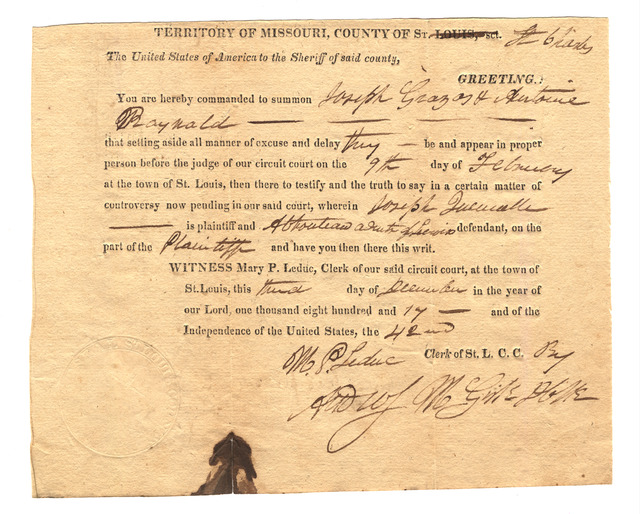 TERRITORY OF MISSOURI, COUNTY OF St. LOUIS, sct. St Charles
The United States of America to the Sheriff of said county,
GREETING:
You are hereby commanded to summon Joseph & Antoine
Raynald
that setting aside all manner of excuse and delay they be and appear in proper
person before the judge of our circuit court on the 9th day of February
at the town of St. Louis, then there to testify and the truth to say in a certain matter of
controversy now pending in our said court, wherein Joseph
is plaintiff and defendant, on the
part of the Plaintiff and have you then there this writ.
WITNESS Mary P. Leduc, Clerk of our said circuit court, at the town of
St.Louis, this third day of December in the year of
our Lord, one thousand eight hundred and 17 and of the
Independence of the United States, the 42nd
M. P. Leduc Clerk of St. L. C. C. By